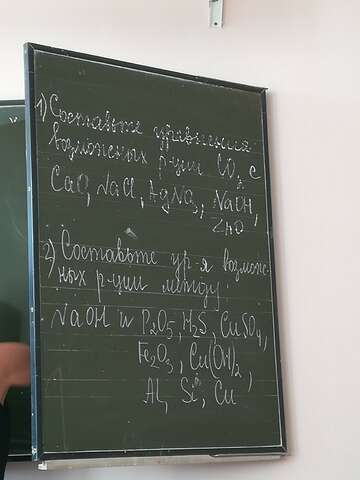 1) Составьте уравнения
возможных р-ции CO₂ с
CaO, NaCl, AgNO₃, NaOH,
ZnO
2) Составьте ур-я возмож-
ных р-ции между:
NaOH и P₂O₅, H₂S, CuSO₄,
Fe₂O₃, Cu(OH)₂,
Al, Si, Cu